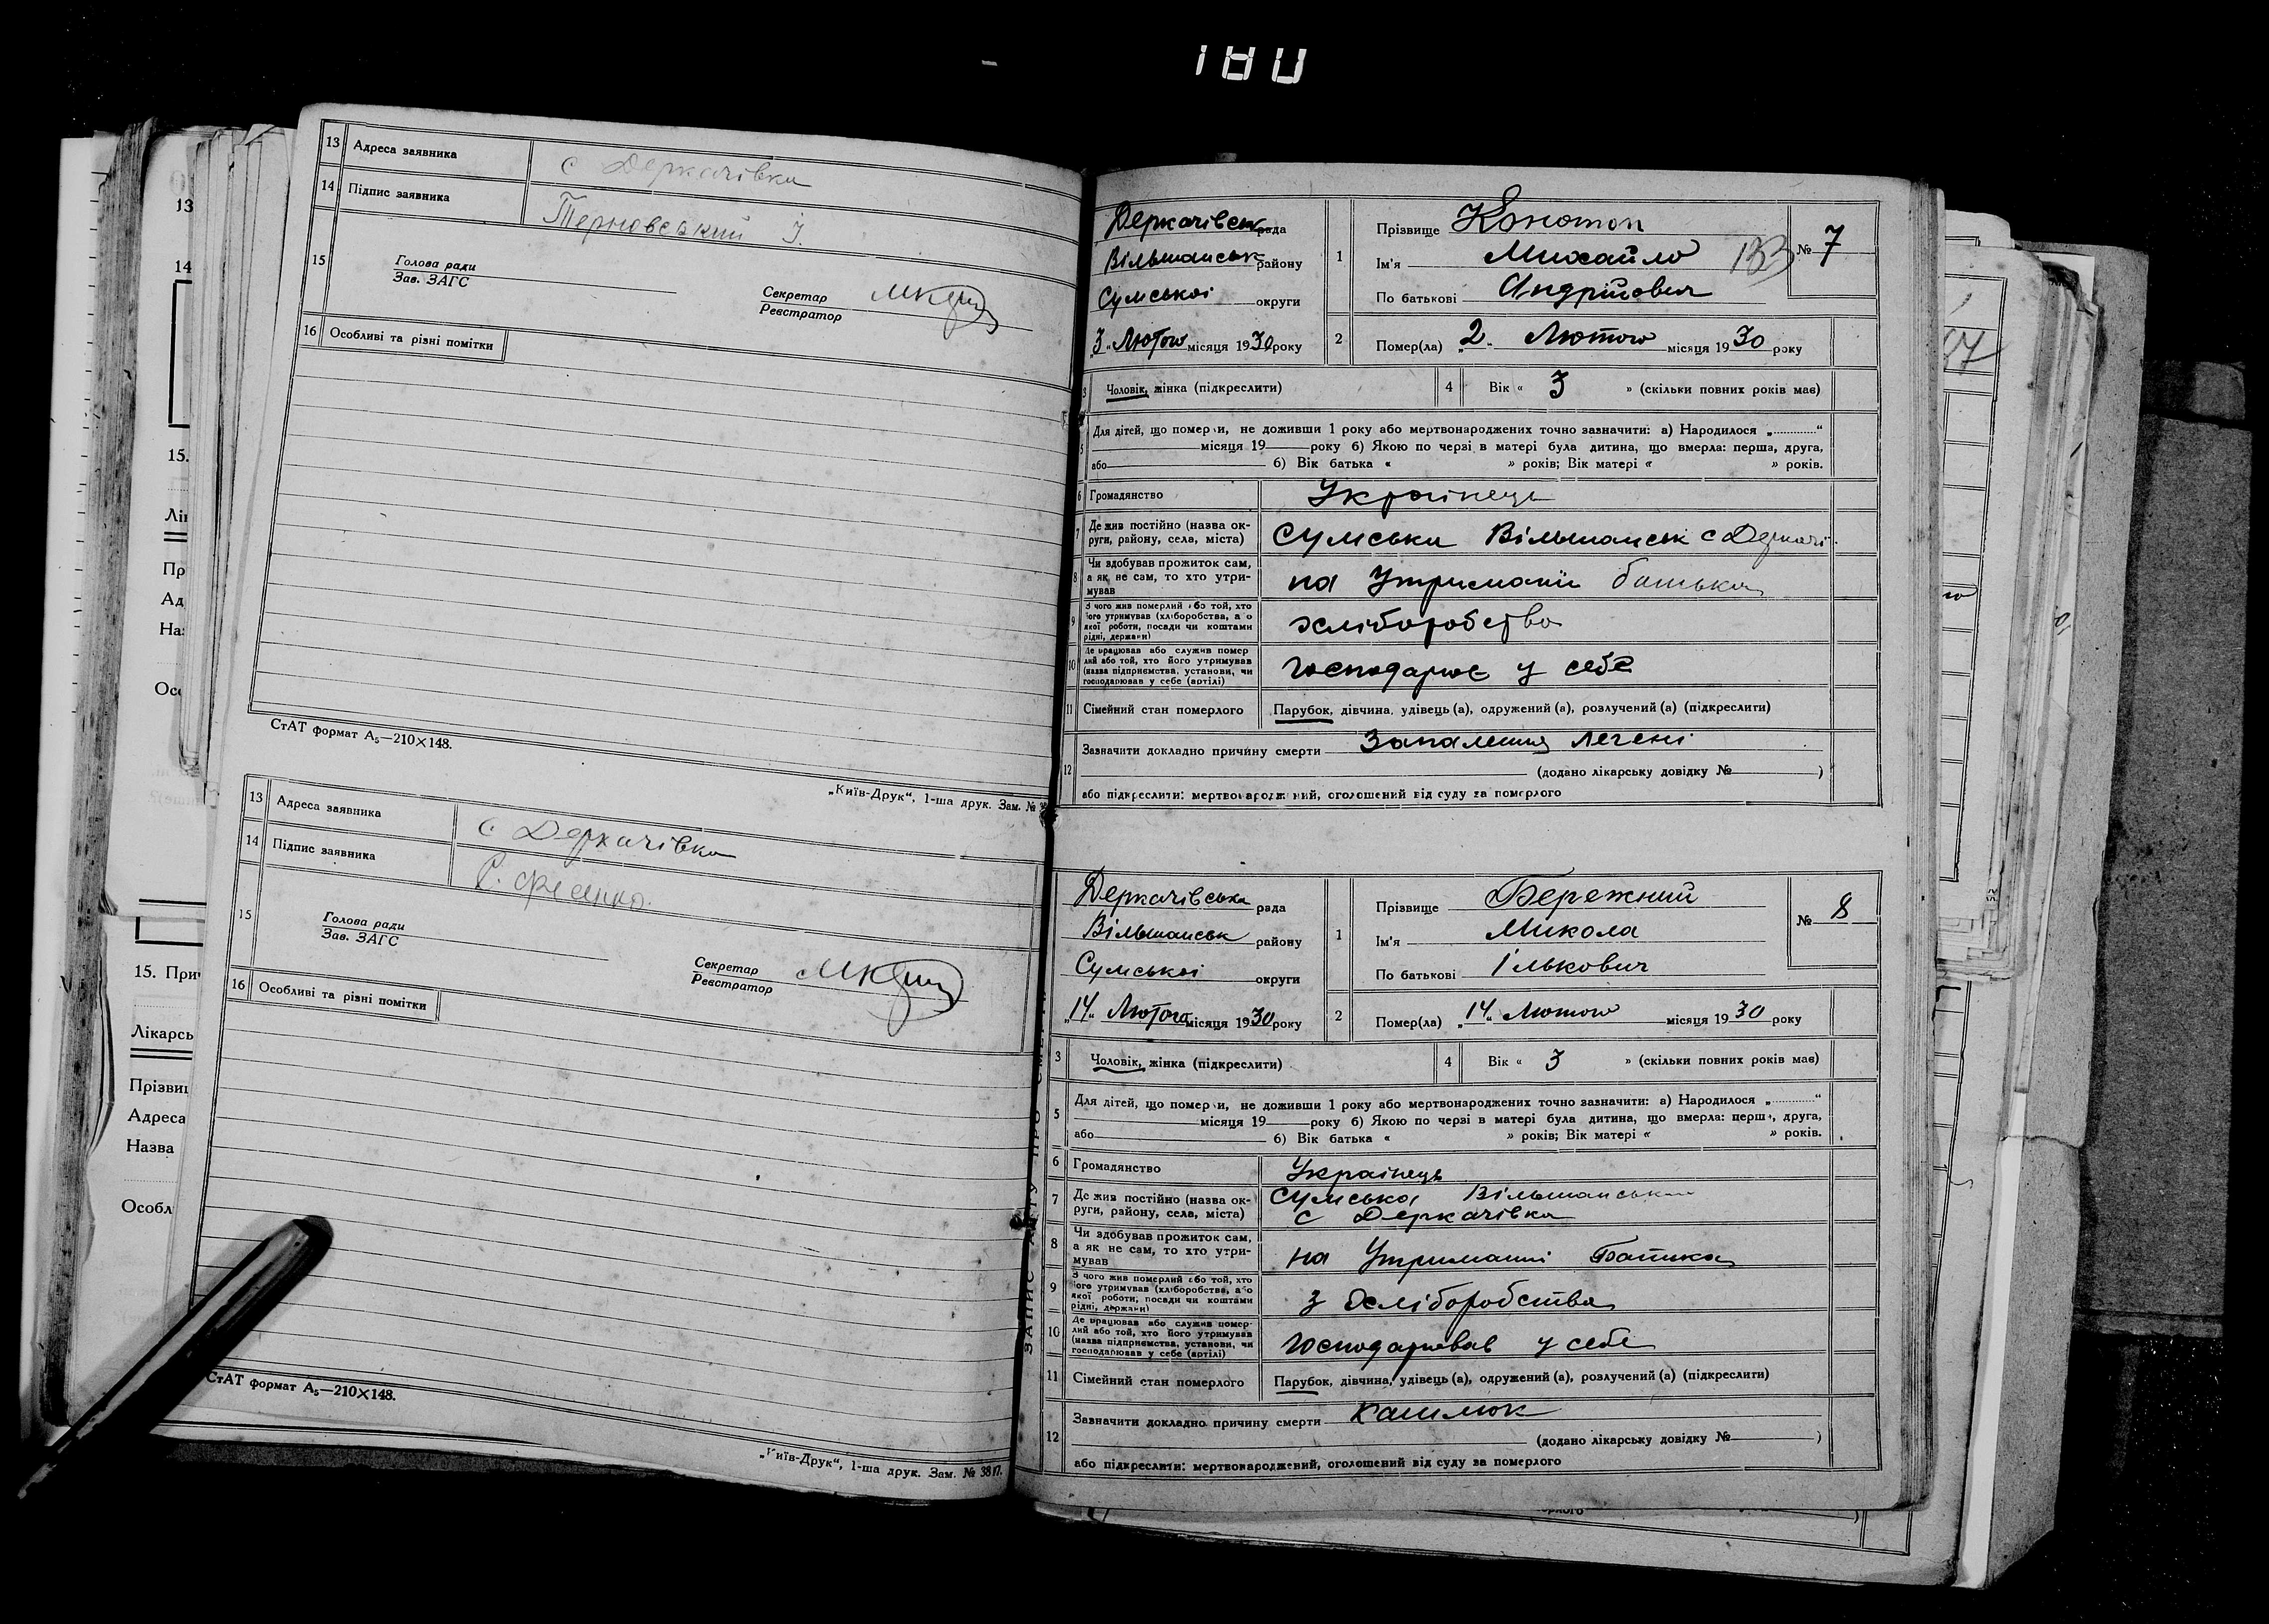 180
13 Адреса заявника с Деркачівка
14 Підпис заявника Терновський І.
15 Голова ради
Зав. ЗАГС
Секретар
Реєстратор
16 Особливі та різні помітки
СтАТ формат А₅—210×148.
„Київ-Друк“, 1-ша друк. Зам. №
13 Адреса заявника с Деркачівка
14 Підпис заявника
15 Голова ради
Зав. ЗАГС
Секретар
Реєстратор
16 Особливі та різні помітки
СтАТ формат А₅—210×148.
„Київ-Друк“, 1-ша друк. Зам. № 3817.
Деркачівськ рада
Вільшанськ району
Сумської округи
„3„ Лютого місяця 1930 року
1 Прізвище Конотоп
Ім'я Михайло 133
По батькові Андрійович
№ 7
2 Помер(ла) „2„ Лютого місяця 1930 року
3 Чоловік, жінка (підкреслити)
4 Вік « 3 » (скільки повних років має)
5 Для дітей, що померли, не доживши 1 року або мертвонароджених точно зазначити: а) Народилося „............“
місяця 19 року б) Якою по черзі в матері була дитина, що вмерла: перша, друга,
або б) Вік батька « » років; Вік матері « » років.
6 Громадянство Українець
7 Де жив постійно (назва ок-
руги, району, села, міста) Сумська Вільшанськ с Деркачі
8 Чи здобував прожиток сам,
а як не сам, то хто утри-
мував на утриманіі батька
9 З чого жив померлий або той, хто
його утримував (хліборобства, або
якої роботи, посади чи коштами
рідні, держави) хліборобство
10 Де працював або служив помер
лий або той, хто його утримував
(назва підприємства, установи, чи
господарював у себе (артілі) господарює у себе
11 Сімейний стан померлого Парубок, дівчина, удівець (а), одружений (а), розлучений (а) (підкреслити)
12 Зазначити докладно причину смерти Запалення легені
(додано лікарську довідку № )
або підкреслити: мертвонароджений, оголошений від суду за померлого
ЗАПИС АКТУ ПРО СМЕРТЬ
Деркачівська рада
Вільшанськ району
Сумської округи
„14„ Лютого місяця 1930 року
1 Прізвище Бережний
Ім'я Микола
По батькові Ількович
№ 8
2 Помер(ла) „14„ Лютого місяця 1930 року
3 Чоловік, жінка (підкреслити)
4 Вік « 3 » (скільки повних років має)
5 Для дітей, що померли, не доживши 1 року або мертвонароджених точно зазначити: а) Народилося „............“
місяця 19 року б) Якою по черзі в матері була дитина, що вмерла: перша, друга,
або б) Вік батька « » років; Вік матері « » років.
6 Громадянство Українець
7 Де жив постійно (назва ок-
руги, району, села, міста) Сумська Вільшанськи
с Деркачівка
8 Чи здобував прожиток сам,
а як не сам, то хто утри-
мував на утриманні Батька
9 З чого жив померлий або той, хто
його утримував (хліборобства, або
якої роботи, посади чи коштами
рідні, держави) з хліборобства
10 Де працював або служив помер-
лий або той, хто його утримував
(назва підприємства, установи, чи
господарював у себе (артілі) господарював у себе
11 Сімейний стан померлого Парубок, дівчина, удівець (а), одружений (а), розлучений (а) (підкреслити)
12 Зазначити докладно причину смерти Кашлюк
(додано лікарську довідку № )
або підкреслити: мертвонароджений, оголошений від суду за померлого